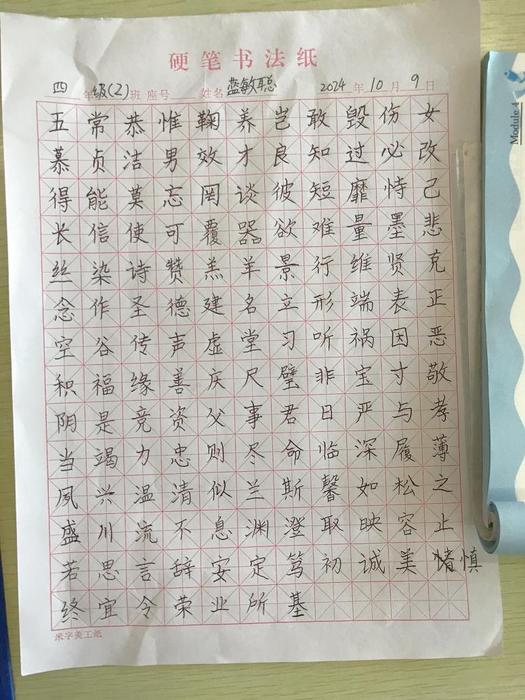 硬笔书法纸
四 年级(2)班 座号 姓名 蓝敏聪 2024年10月9日
五常恭惟鞠养岂敢毁伤女
慕贞洁男效才良知过必改
得能莫忘罔谈彼短靡恃己
长信使可覆器欲难量墨悲
丝染诗赞羔羊景行维贤克
念作圣德建名立形端表正
空谷传声虚堂习听祸因恶
积福缘善庆尺璧非宝寸
阴是竞资父事君日严与敬孝
当竭力忠则尽命临深履薄
夙兴温清似兰斯馨如松之
盛川流不息渊澄取映容止
若思言辞安定笃初诚美慎
终宜令荣业所基
米字美工纸
Module 4